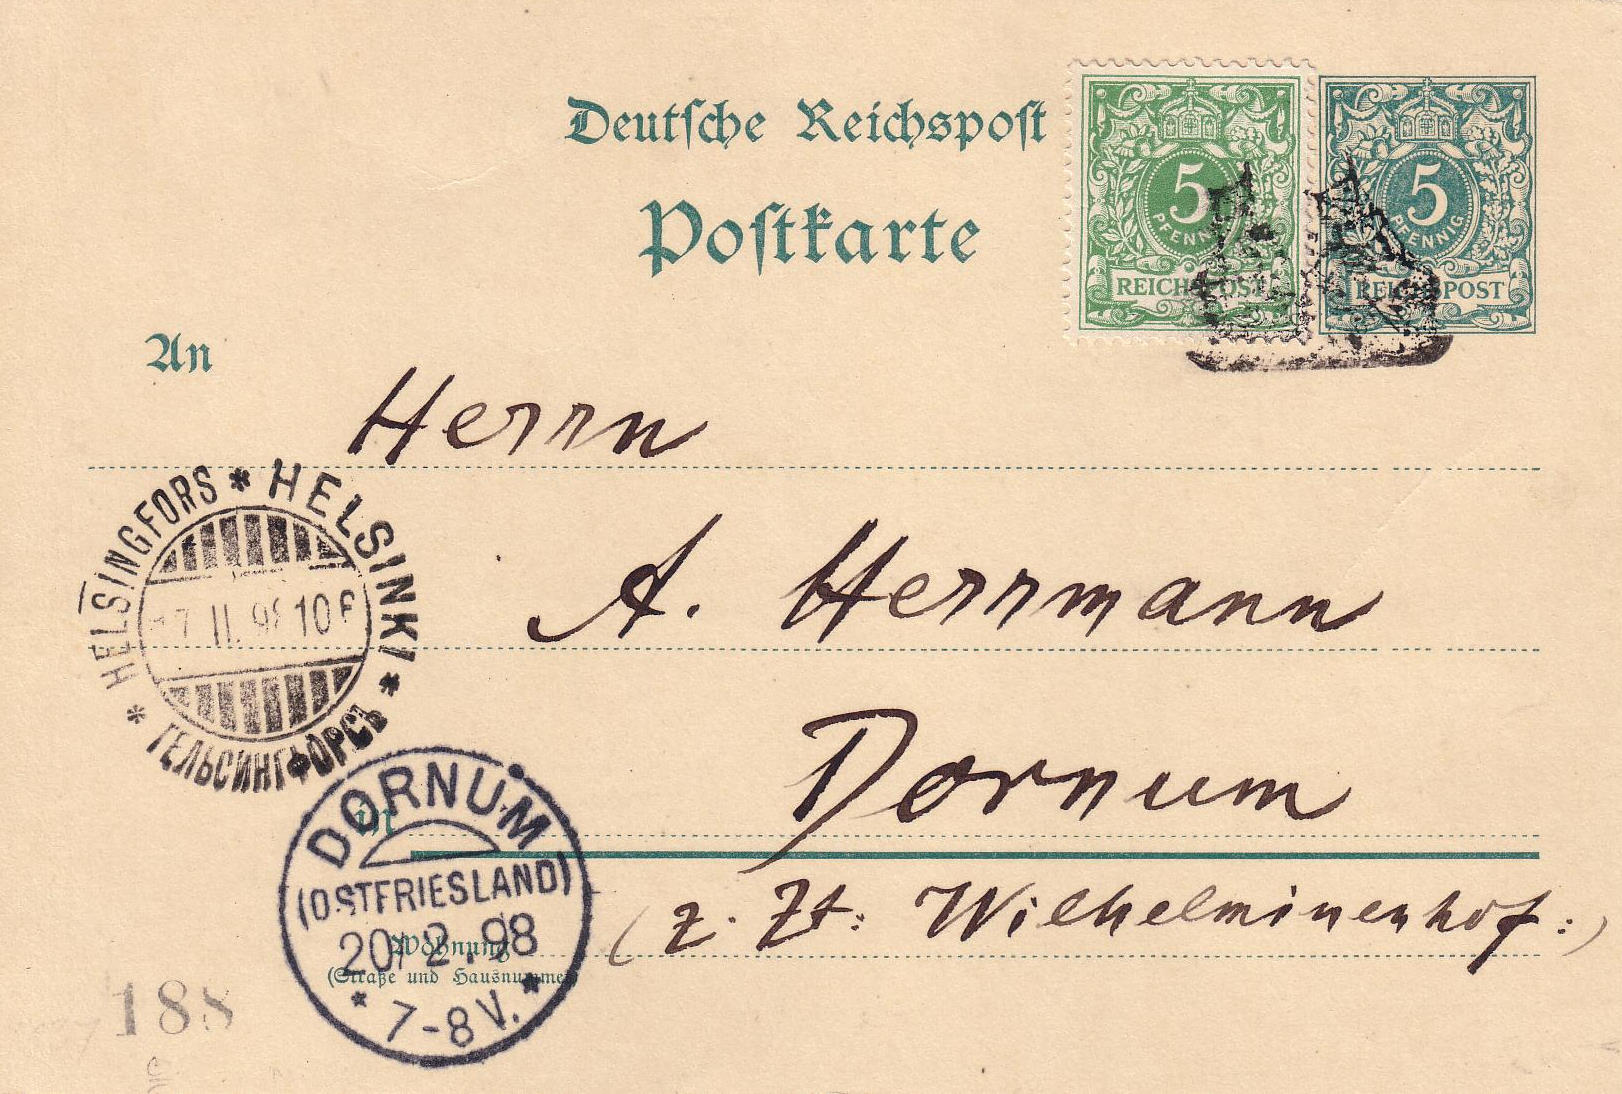 Deutsche Reichspost
Postkarte
5
PFENNIG
REICHSPOST
5
PFENNIG
REICHSPOST
An
Herrn
A. Herrmann
Dornum
in
(z. Zt: Wilhelminenhof:)
Wohnung
(Straße und Hausnummer)
* HELSINGFORS * HELSINKI *
ГЕЛЬСИНГФОРСЪ
17 II. 98 10
DORNUM
(OSTFRIESLAND)
20 2. 98
* 7-8 V. *
188